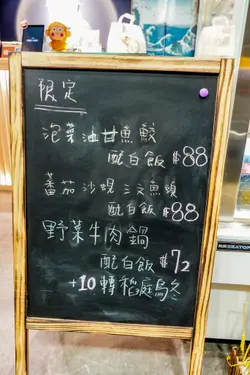 限定
泡菜油甘魚鮫
配白飯 $88
蕃茄沙蜆三文魚頭
配白飯 $88
野菜牛肉鍋
配白飯 $72
+10轉稻庭烏冬